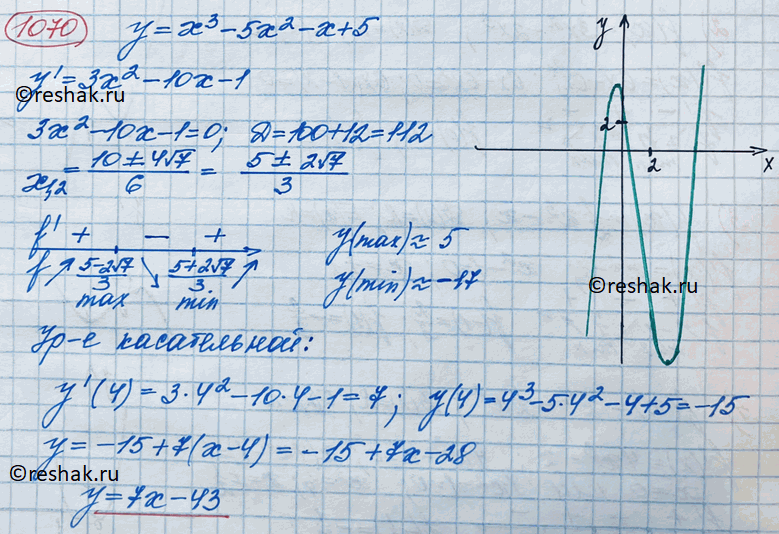 1070 y = x³ - 5x² - x + 5
y' = 3x² - 10x - 1
©reshak.ru
3x² - 10x - 1 = 0; D = 100 + 12 = 112
x₁,₂ = (10 ± 4√7)/6 = (5 ± 2√7)/3
f' + − +
f ↗ (5-2√7)/3 ↘ (5+2√7)/3 ↗
max min
y(max) ≈ 5
y(min) ≈ -17
Ур-е касательной:
y'(4) = 3·4² - 10·4 - 1 = 7; y(4) = 4³ - 5·4² - 4 + 5 = -15
y = -15 + 7(x - 4) = -15 + 7x - 28
©reshak.ru
y = 7x - 43
y
2
2
x
©reshak.ru